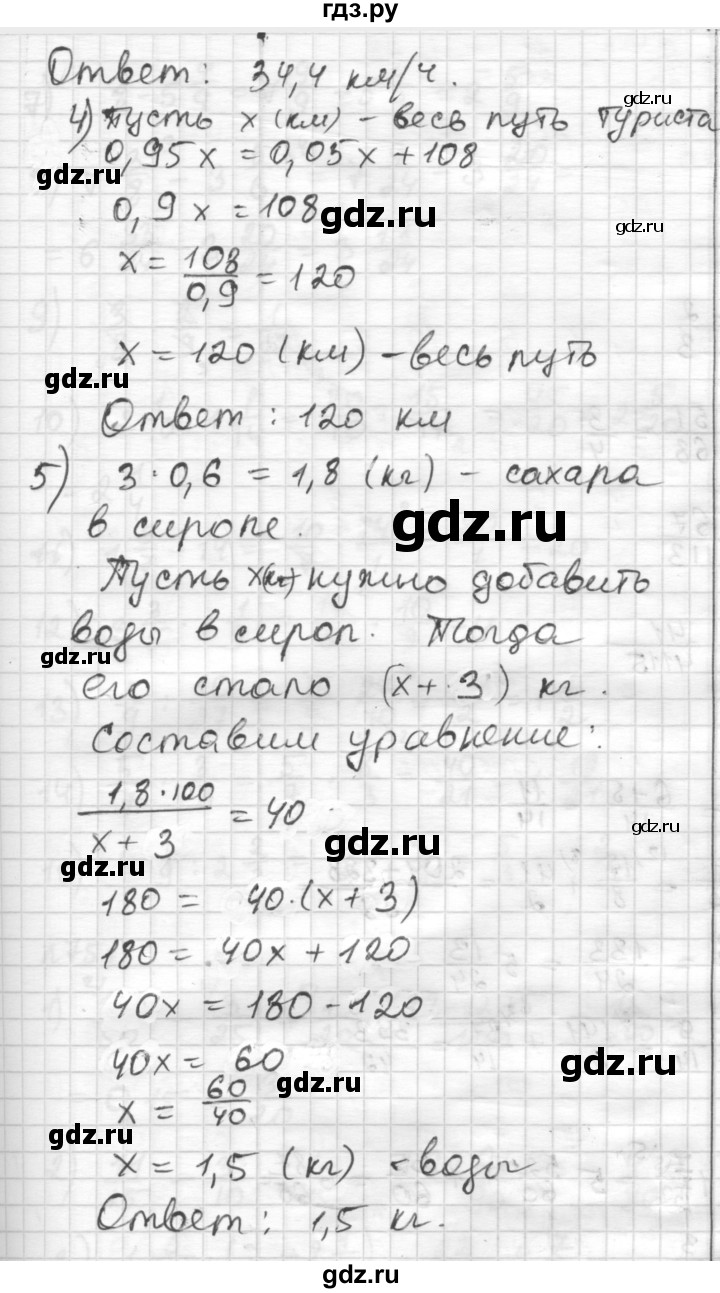 гдз.ру
Ответ: 34,4 км/ч.
gdz.ru
4) Пусть x (км) – весь путь туриста
0,95x = 0,05x + 108
gdz.ru
0,9x = 108
gdz.ru
gdz.ru
x = 108/0,9 = 120
x = 120 (км) – весь путь
gdz.ru
Ответ: 120 км
5) 3·0,6 = 1,8 (кг) – сахара
в сиропе.
gdz.ru
Пусть x(кг) нужно добавить
воды в сироп. Тогда
gdz.ru
его стало (x + 3) кг.
Составим уравнение:
1,8·100/x + 3 = 40
gdz.ru
gdz.ru
gdz.ru
180 = 40·(x + 3)
180 = 40x + 120
40x = 180 - 120
40x = 60
gdz.ru
gdz.ru
x = 60/40
gdz.ru
x = 1,5 (кг) – воды
Ответ: 1,5 кг.
gdz.ru